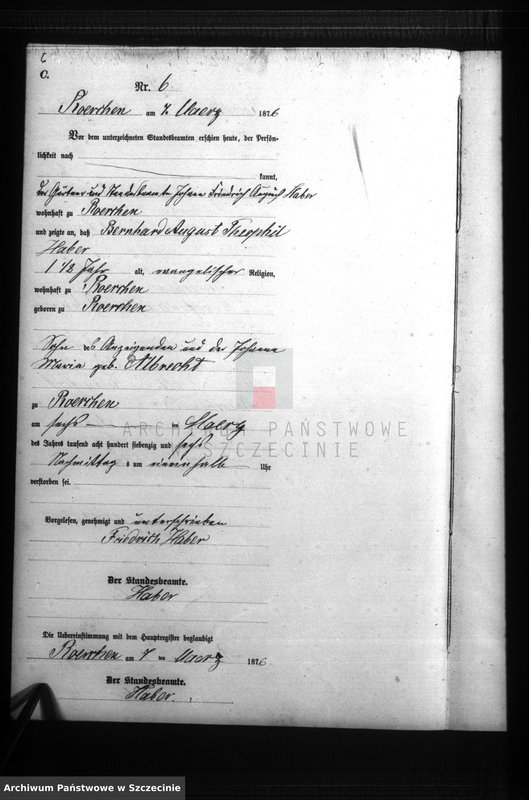 C.
Nr. 6
Roerchen am 7. Maerz 1876
Vor dem unterzeichneten Standesbeamten erschien heute, der Persön-
lichkeit nach
kannt,
der Gärtner und Standesbeamte Johann Friedrich August Haber
wohnhaft zu Roerchen
und zeigte an, daß Bernhard August Theophil
Haber
1 1/2 Jahr alt, evangelischer Religion,
wohnhaft zu Roerchen
geboren zu Roerchen
Sohn des Anzeigenden und der Johanne
Maria geb. Albrecht
zu Roerchen
am sechs ten Maerz
des Jahres tausend acht hundert siebenzig und sechs
Nachmittags um einenhalb Uhr
verstorben sei.
Vorgelesen, genehmigt und unterschrieben
Friedrich Haber
Der Standesbeamte.
Haber
Die Uebereinstimmung mit dem Hauptregister beglaubigt
Roerchen am 7 ten Maerz 1876
Der Standesbeamte.
Haber.
ARCHIWUM PAŃSTWOWE
W SZCZECINIE
Archiwum Państwowe w Szczecinie